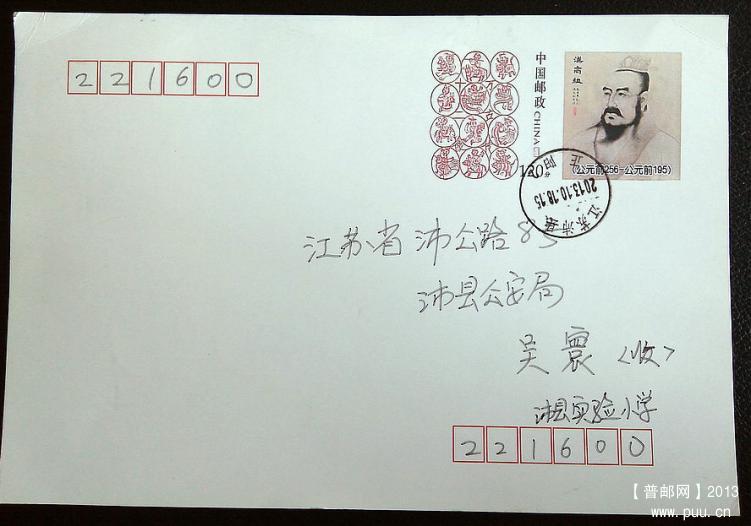 221600
中国邮政 CHINA
汉高祖
(公元前256-公元前195)
120
2013.10.18.15
江苏沛县
江苏省沛公路85
沛县公安局
吴震〈收〉
沛县实验小学
221600
【普邮网】2013
www.puu.cn